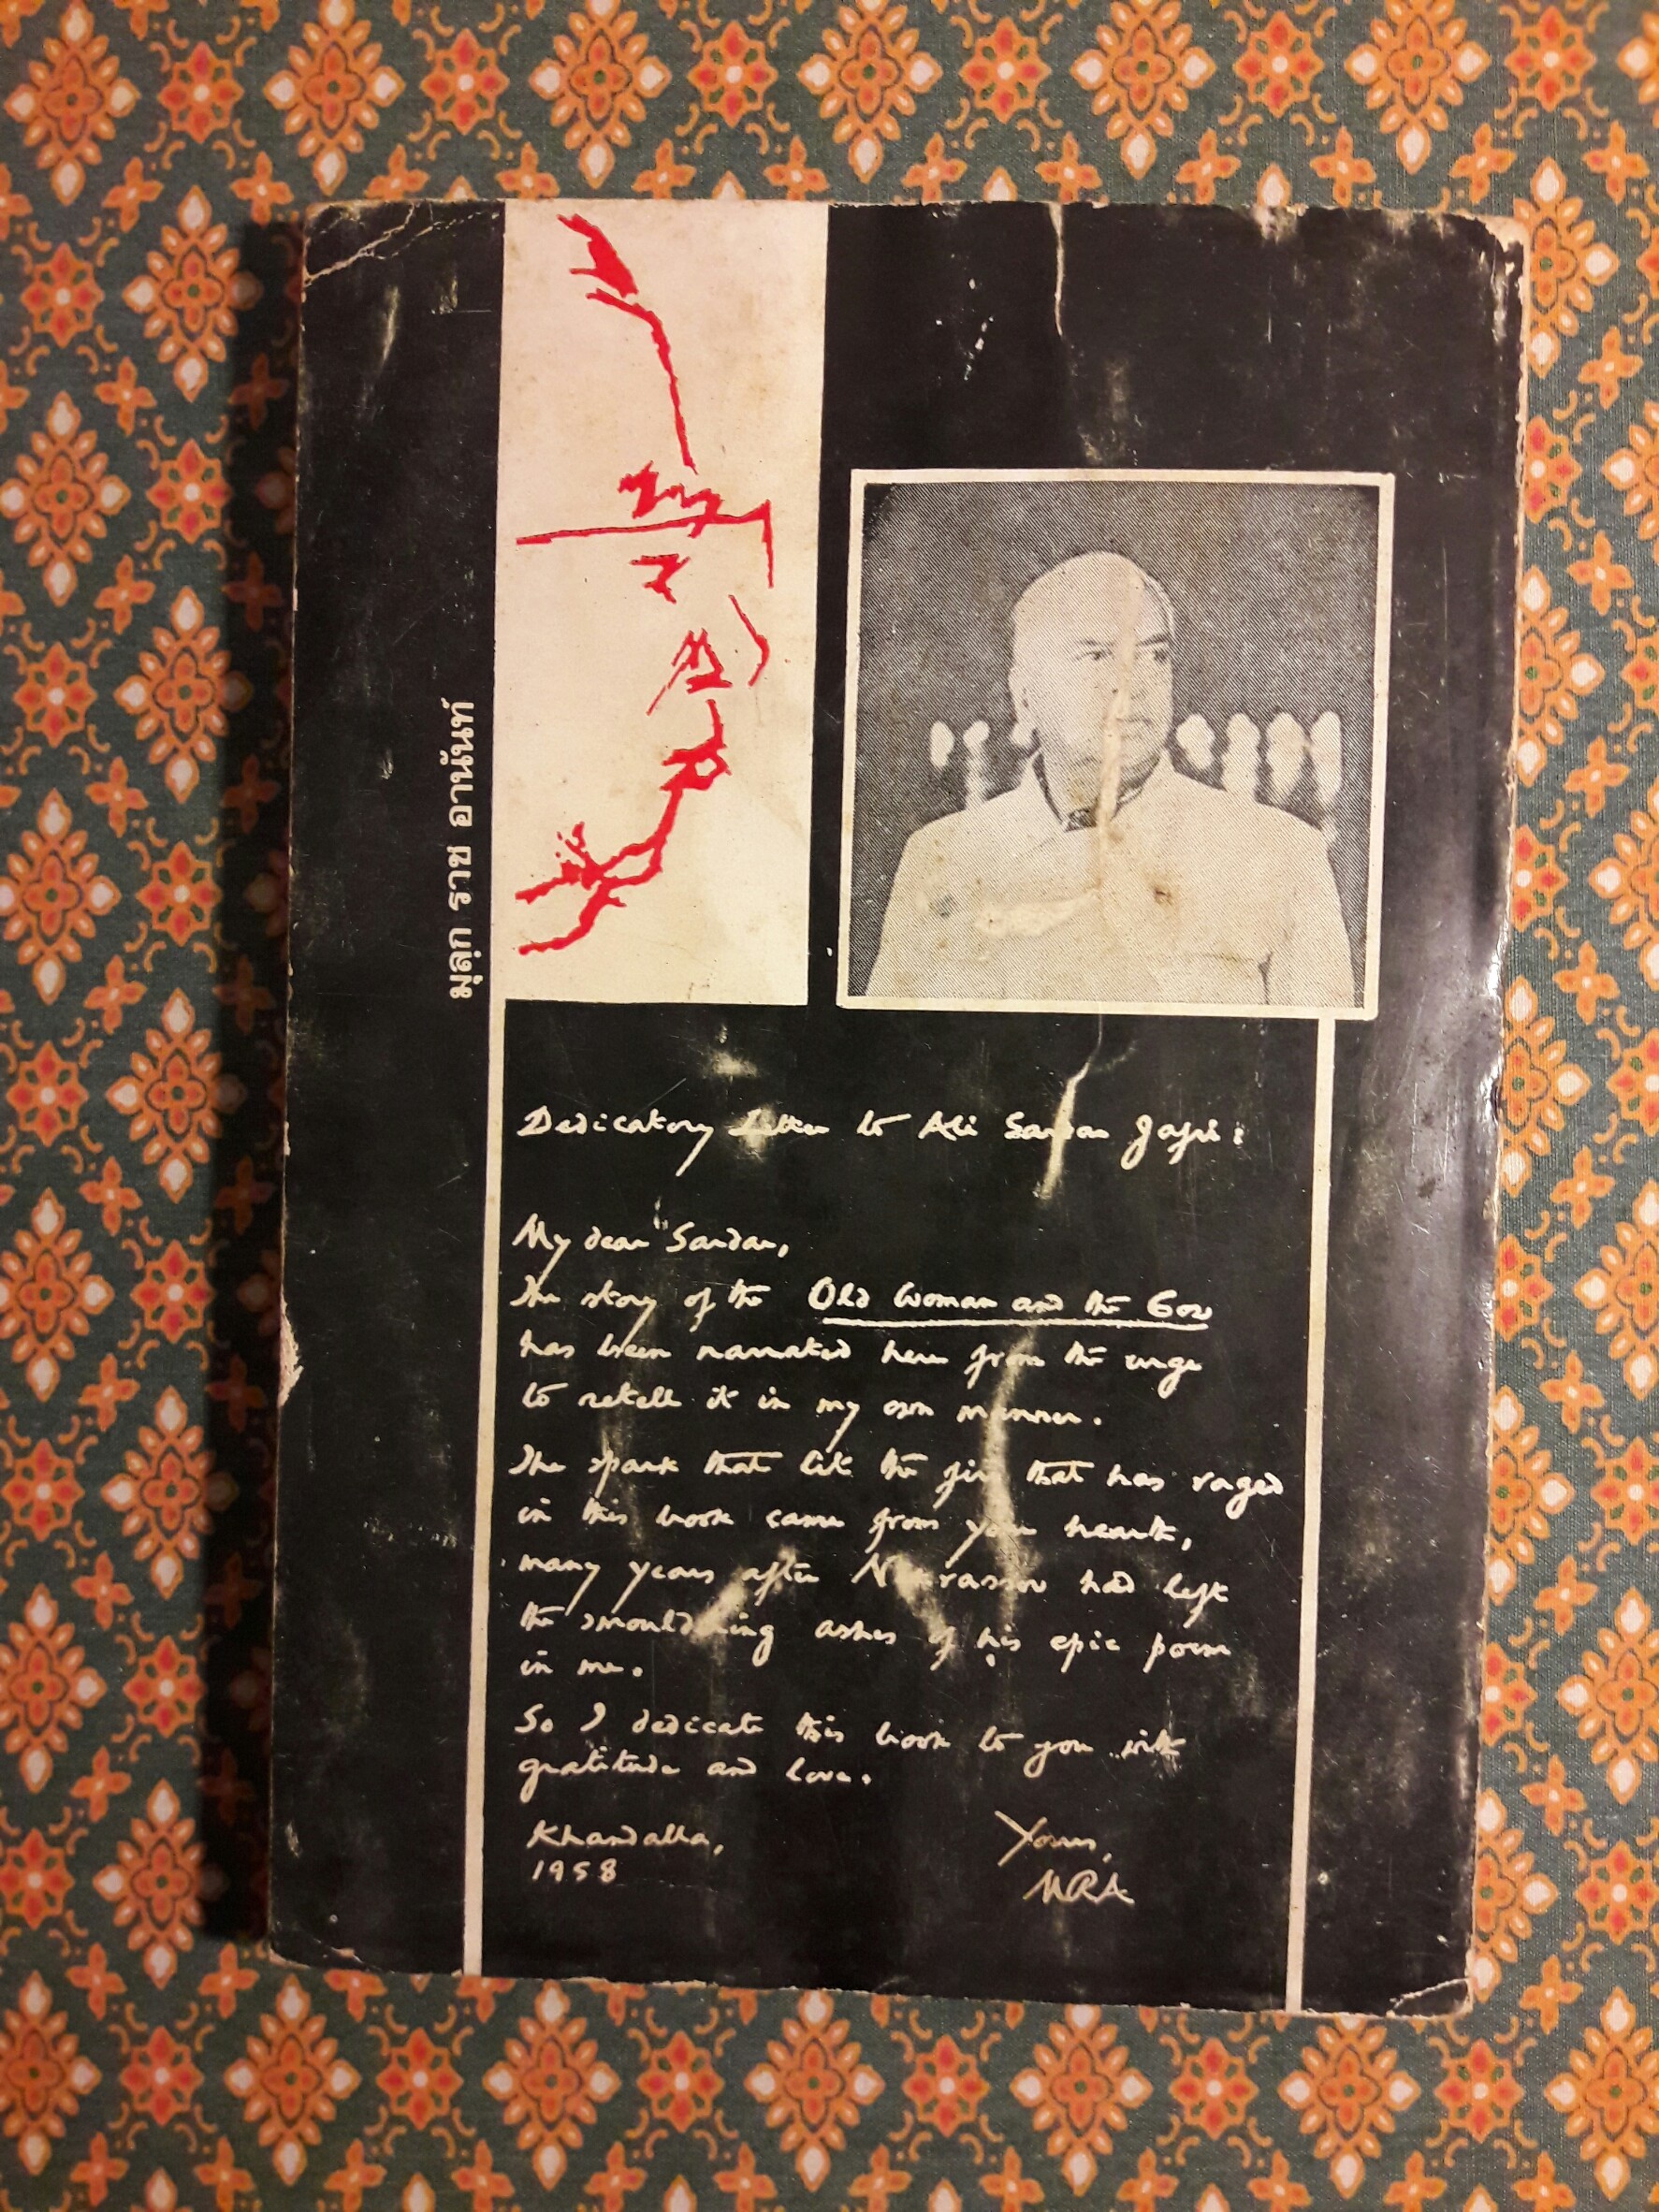 มุลฺก ราช อานันท์
Dedicatory Letter to Ali Sardar Jafri:
My dear Sardar,
The story of the Old Woman and the Cow
has been narrated here from the urge
to retell it in my own manner.
The spark that lit the fire that has raged
in this book came from your hearth,
many years after Nekrassov had left
the smouldering ashes of his epic poem
in me.
So I dedicate this book to you with
gratitude and love.
Khandalla,
1958
Yours,
MRA